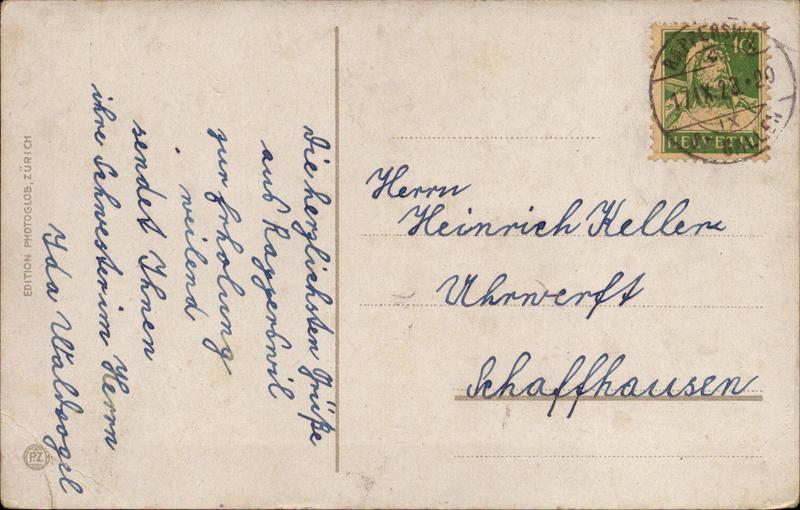 Die herzlichsten Grüße
aus Rapperswil
zur Erholung
weilend
sendet Ihnen
ihre Schwester im Herrn
Ida Waldvogel
EDITION PHOTOGLOB, ZÜRICH
PZ
10
HELVETIA
17.IX.23.-20
IX
Herrn
Heinrich Keller
Uhrwerft
Schaffhausen